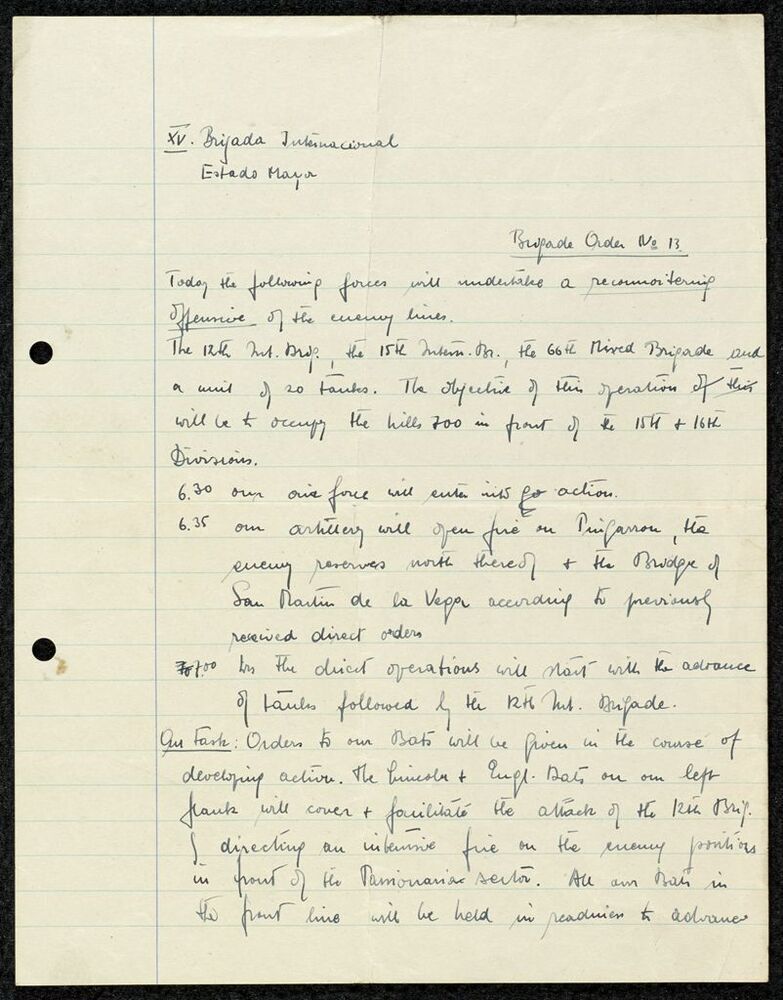 XV. Brigada Internacional
Estado Mayor
Brigade Order No 13.
Today the following forces will undertake a reconnoitering
offensive of the enemy lines.
The 12th Int. Brig., the 15th Intern. Br., the 66th Mixed Brigade and
a unit of 20 tanks. The objective of this operation of this
will be to occupy the hills 700 in front of the 15th + 16th
Divisions.
6.30 our air force will enter into go action.
6.35 our artillery will open fire on Pingarron, the
enemy reserves north thereof + the Bridge of
San Martin de la Vega according to previously
received direct orders
7.00 hrs The direct operations will start with the advance
of tanks followed by the 12th Int. Brigade.
Our Task: Orders to our Bats will be given in the course of
developing action. The Lincoln + Engl. Bats on our left
flank will cover + facilitate the attack of the 12th Brig.
directing an intensive fire on the enemy positions
in front of the Passionaria sector. All our Bats in
the front line will be held in readiness to advance